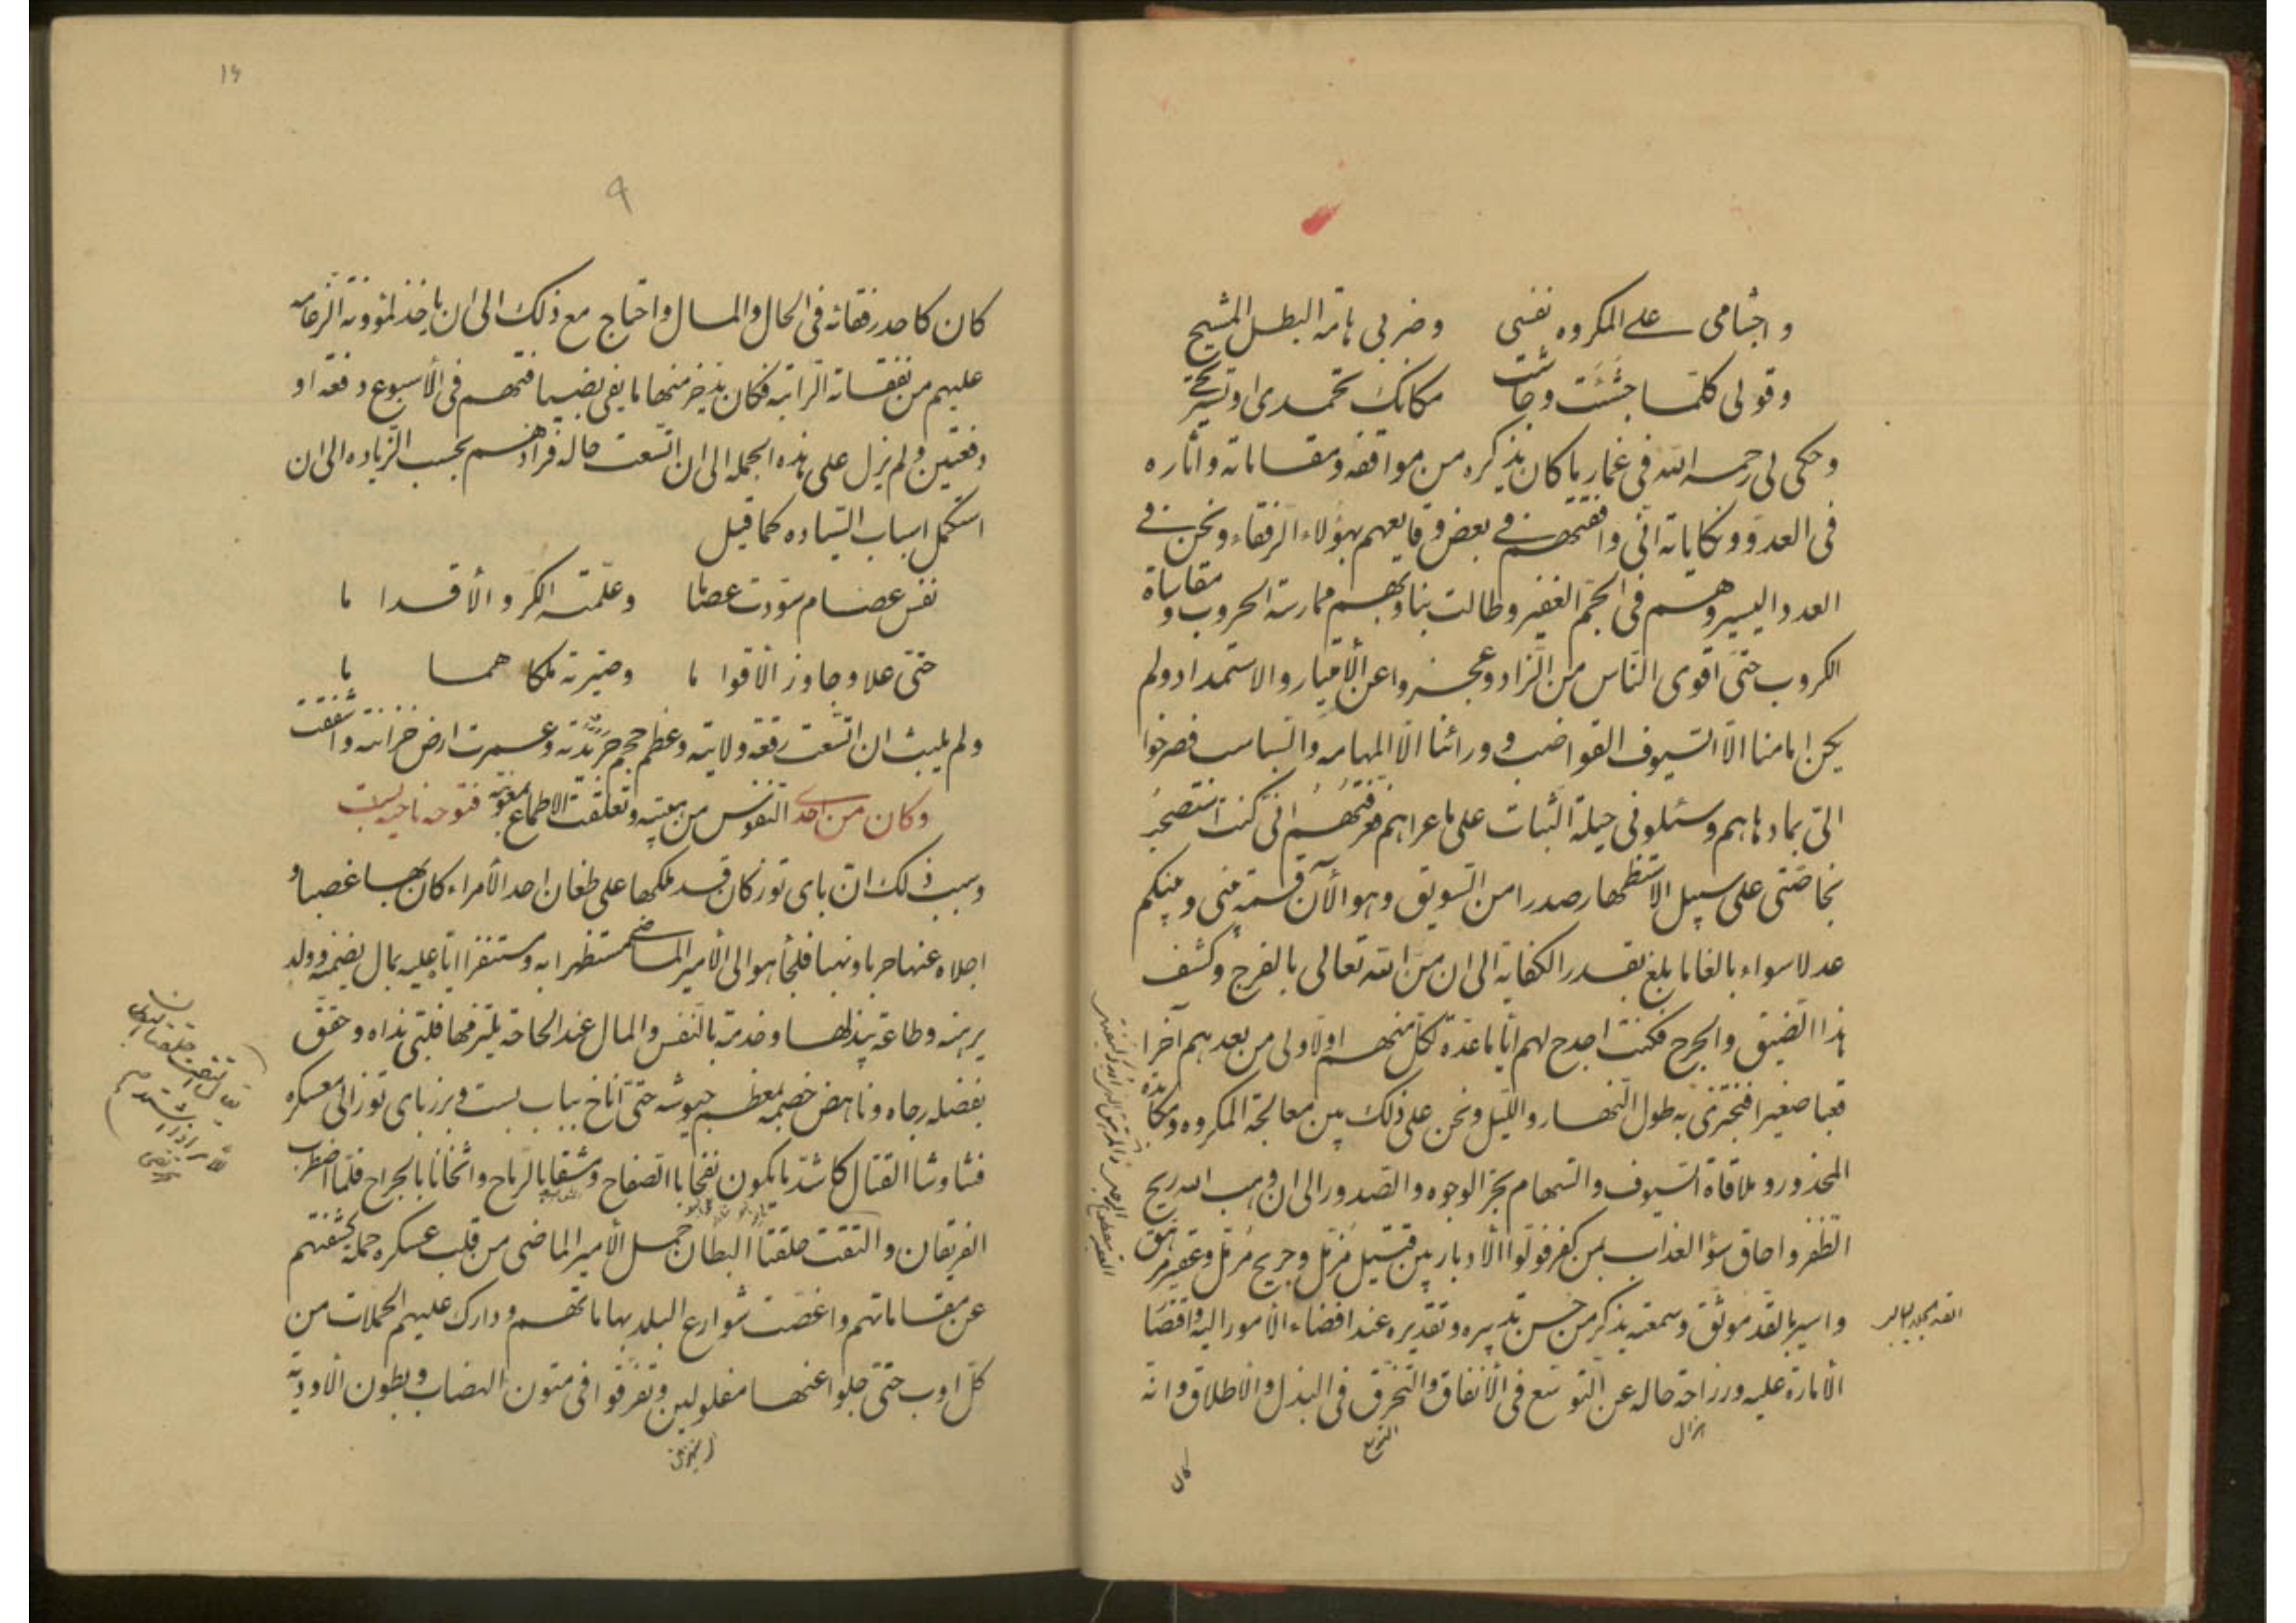 واجشامى على المكروه نفسى وضربى هامة البطل المشيح
وقولى كلما جشئت وجاشت مكانك تحمدى او تستريحى
وحكى لى رحمه الله فى غمار ما كان يذكره من مواقفه ومقاماته وآثاره
فى العدو ونكاياته انى وافقتهم فى بعض وقايعهم بهؤلاء الرفقاء ونحن فى
العدد اليسير وهم فى الجم الغفير وطالت بنا وبهم ممارسة الحروب ومقاساة
الكروب حتى اقوى الناس من الزاد وعجزوا عن الأمتيار والاستمداد ولم
يكن امامنا الا السيوف القواضب وورائنا الا المهامه والسباسب فصرخوا
الى بما دهاهم وسئلونى حيلة الثبات على ما عراهم فعرفتهم انى كنت استصحبت
لخاصتى على سبيل الاستظهار صدرا من السويق وهو الآن قسمة بينى وبينكم
عدلا سواء بالغا ما بلغ بقدر الكفاية الى ان من الله تعالى بالفرج وكشف
هذا الضيق والحرج فكنت اجدح لهم اياما عدة لكل منهم اولا ولى من بعدهم آخرا
قعبا صغيرا فنجتزى به طول النهار والليل ونحن على ذلك بين معالجة المكروه ومكابدة
المحذور وملاقاة السيوف والسهام بحر الوجوه والصدور الى ان وهب الله ريح
الظفر واحاق سؤ العذاب بمن كفر فولوا الأدبار بين قتيل مزمل وجريح مرمل وعقير مرهق
واسير بالقد موثق وسمعته يذكر من حسن تدبيره وتقديره عند افضاء الأمور اليه واقتصا
الأمارة عليه ورزاحة حاله عن التوسع فى الأنفاق والتخرق فى البذل والأطلاق وانه
هزال
التوسع
كان
٩
كان كاحد رفقائه فى الحال والمال واحتاج مع ذلك الى ان ياخذ لمؤونة الزعامه
عليهم من نفقاته الراتبه فكان يدخر منها ما يفى بضيافتهم فى الأسبوع دفعة او
دفعتين ولم يزل على هذه الجمله الى ان اتسعت حاله فزادهم بحسب الزياده الى ان
استكمل اسباب السياده كما قيل
نفس عصام سودت عصاما وعلمته الكر والأقداما
حتى علا وجاوز الأقواما وصيرته ملكا هماما
ولم يلبث ان اتسعت رقعة ولايته وعظم حجم جريدته وعمرت ارض خزانته واشفقت
النفوس من هيبته وتعلقت الاطماع بمعونته وكان من احدى فتوحه ناحية بست
وسبب ذلك ان باى توز كان قد ملكها على طغان احد الأمراء كان بها غصبا و
اجلاه عنها حربا ونهبا فلجأ هو الى الأمير الماضى مستظهرا به ومستنفرا اياه عليه بمال يضمنه وولد
يرهنه وطاعة يبذلها وخدمة بالنفس والمال عند الحاجة يلتزمها فلبى نداه وحقق
بفضله رجاه وناهض خصمه بمعظم جيوشه حتى أناخ بباب بست وبرز باى توز الى معسكره
فتناوشا القتال كاشد ما يكون نفحا بالصفاح ومشقا بالرماح واثخانا بالجراح فلما اضطرب
الفريقان والتقت حلقتا البطان حمل الأمير الماضى من قلب عسكره حملة كشفتهم
عن مقاماتهم واغصت شوارع البلد بهاماتهم ودارك عليهم الحملات من
كل اوب حتى جلوا عنها مفلولين وتفرقوا فى متون الهضاب وبطون الأودية